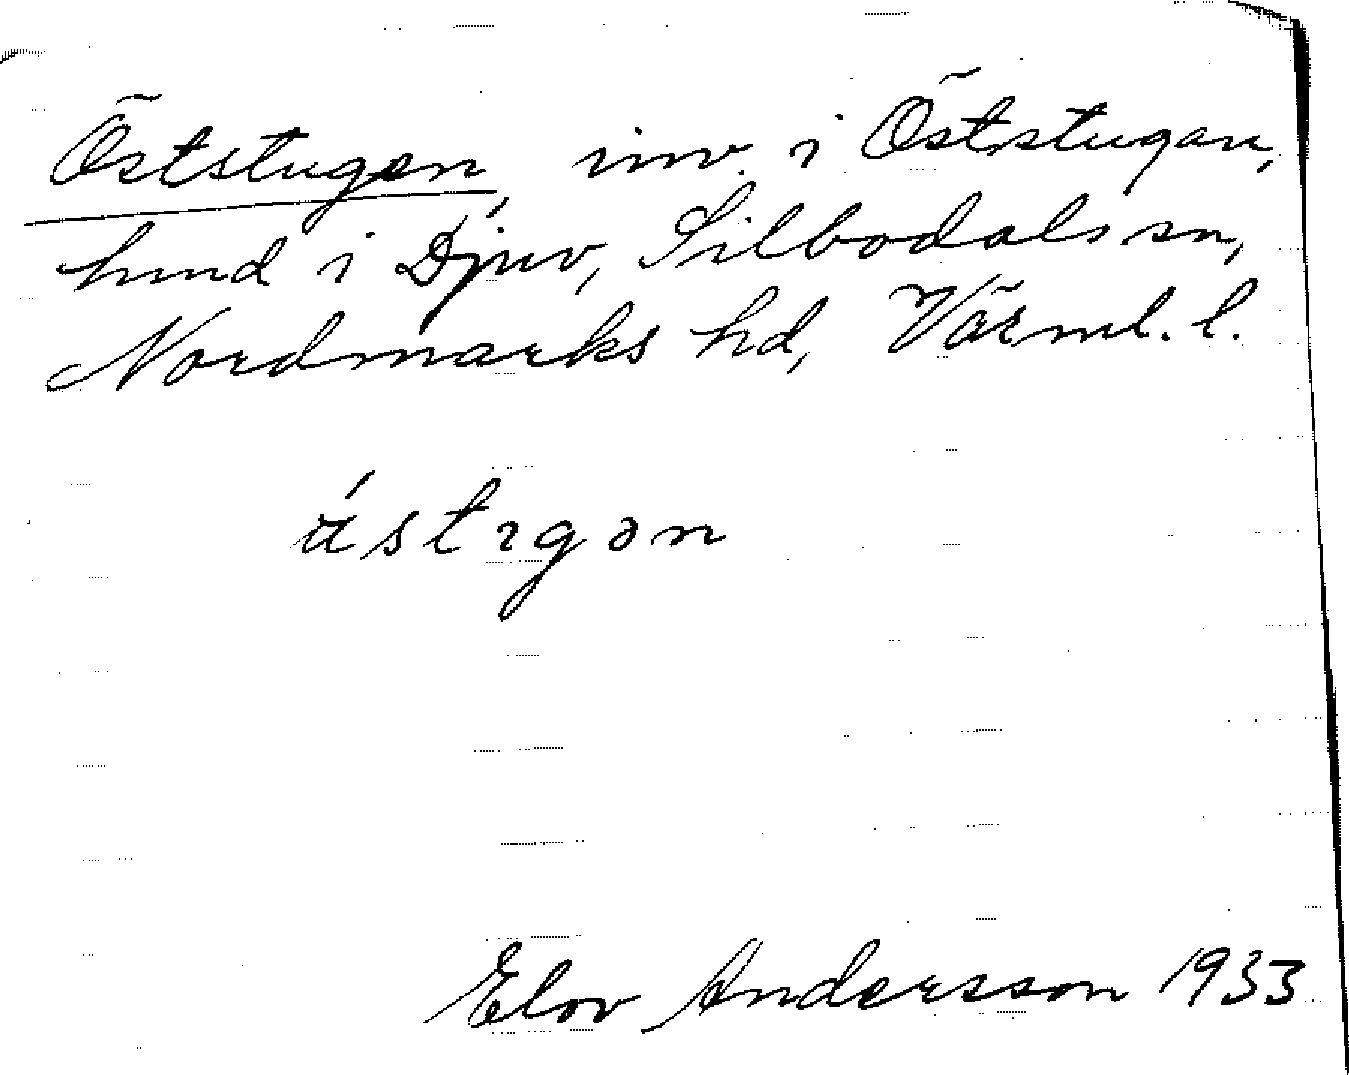 Öststugen, inv. i Öststugan,
hmd i Djuv, Silbodals sn,
Nordmarks hd, Värml. l.
ǻstıgən
Elov Andersson 1933